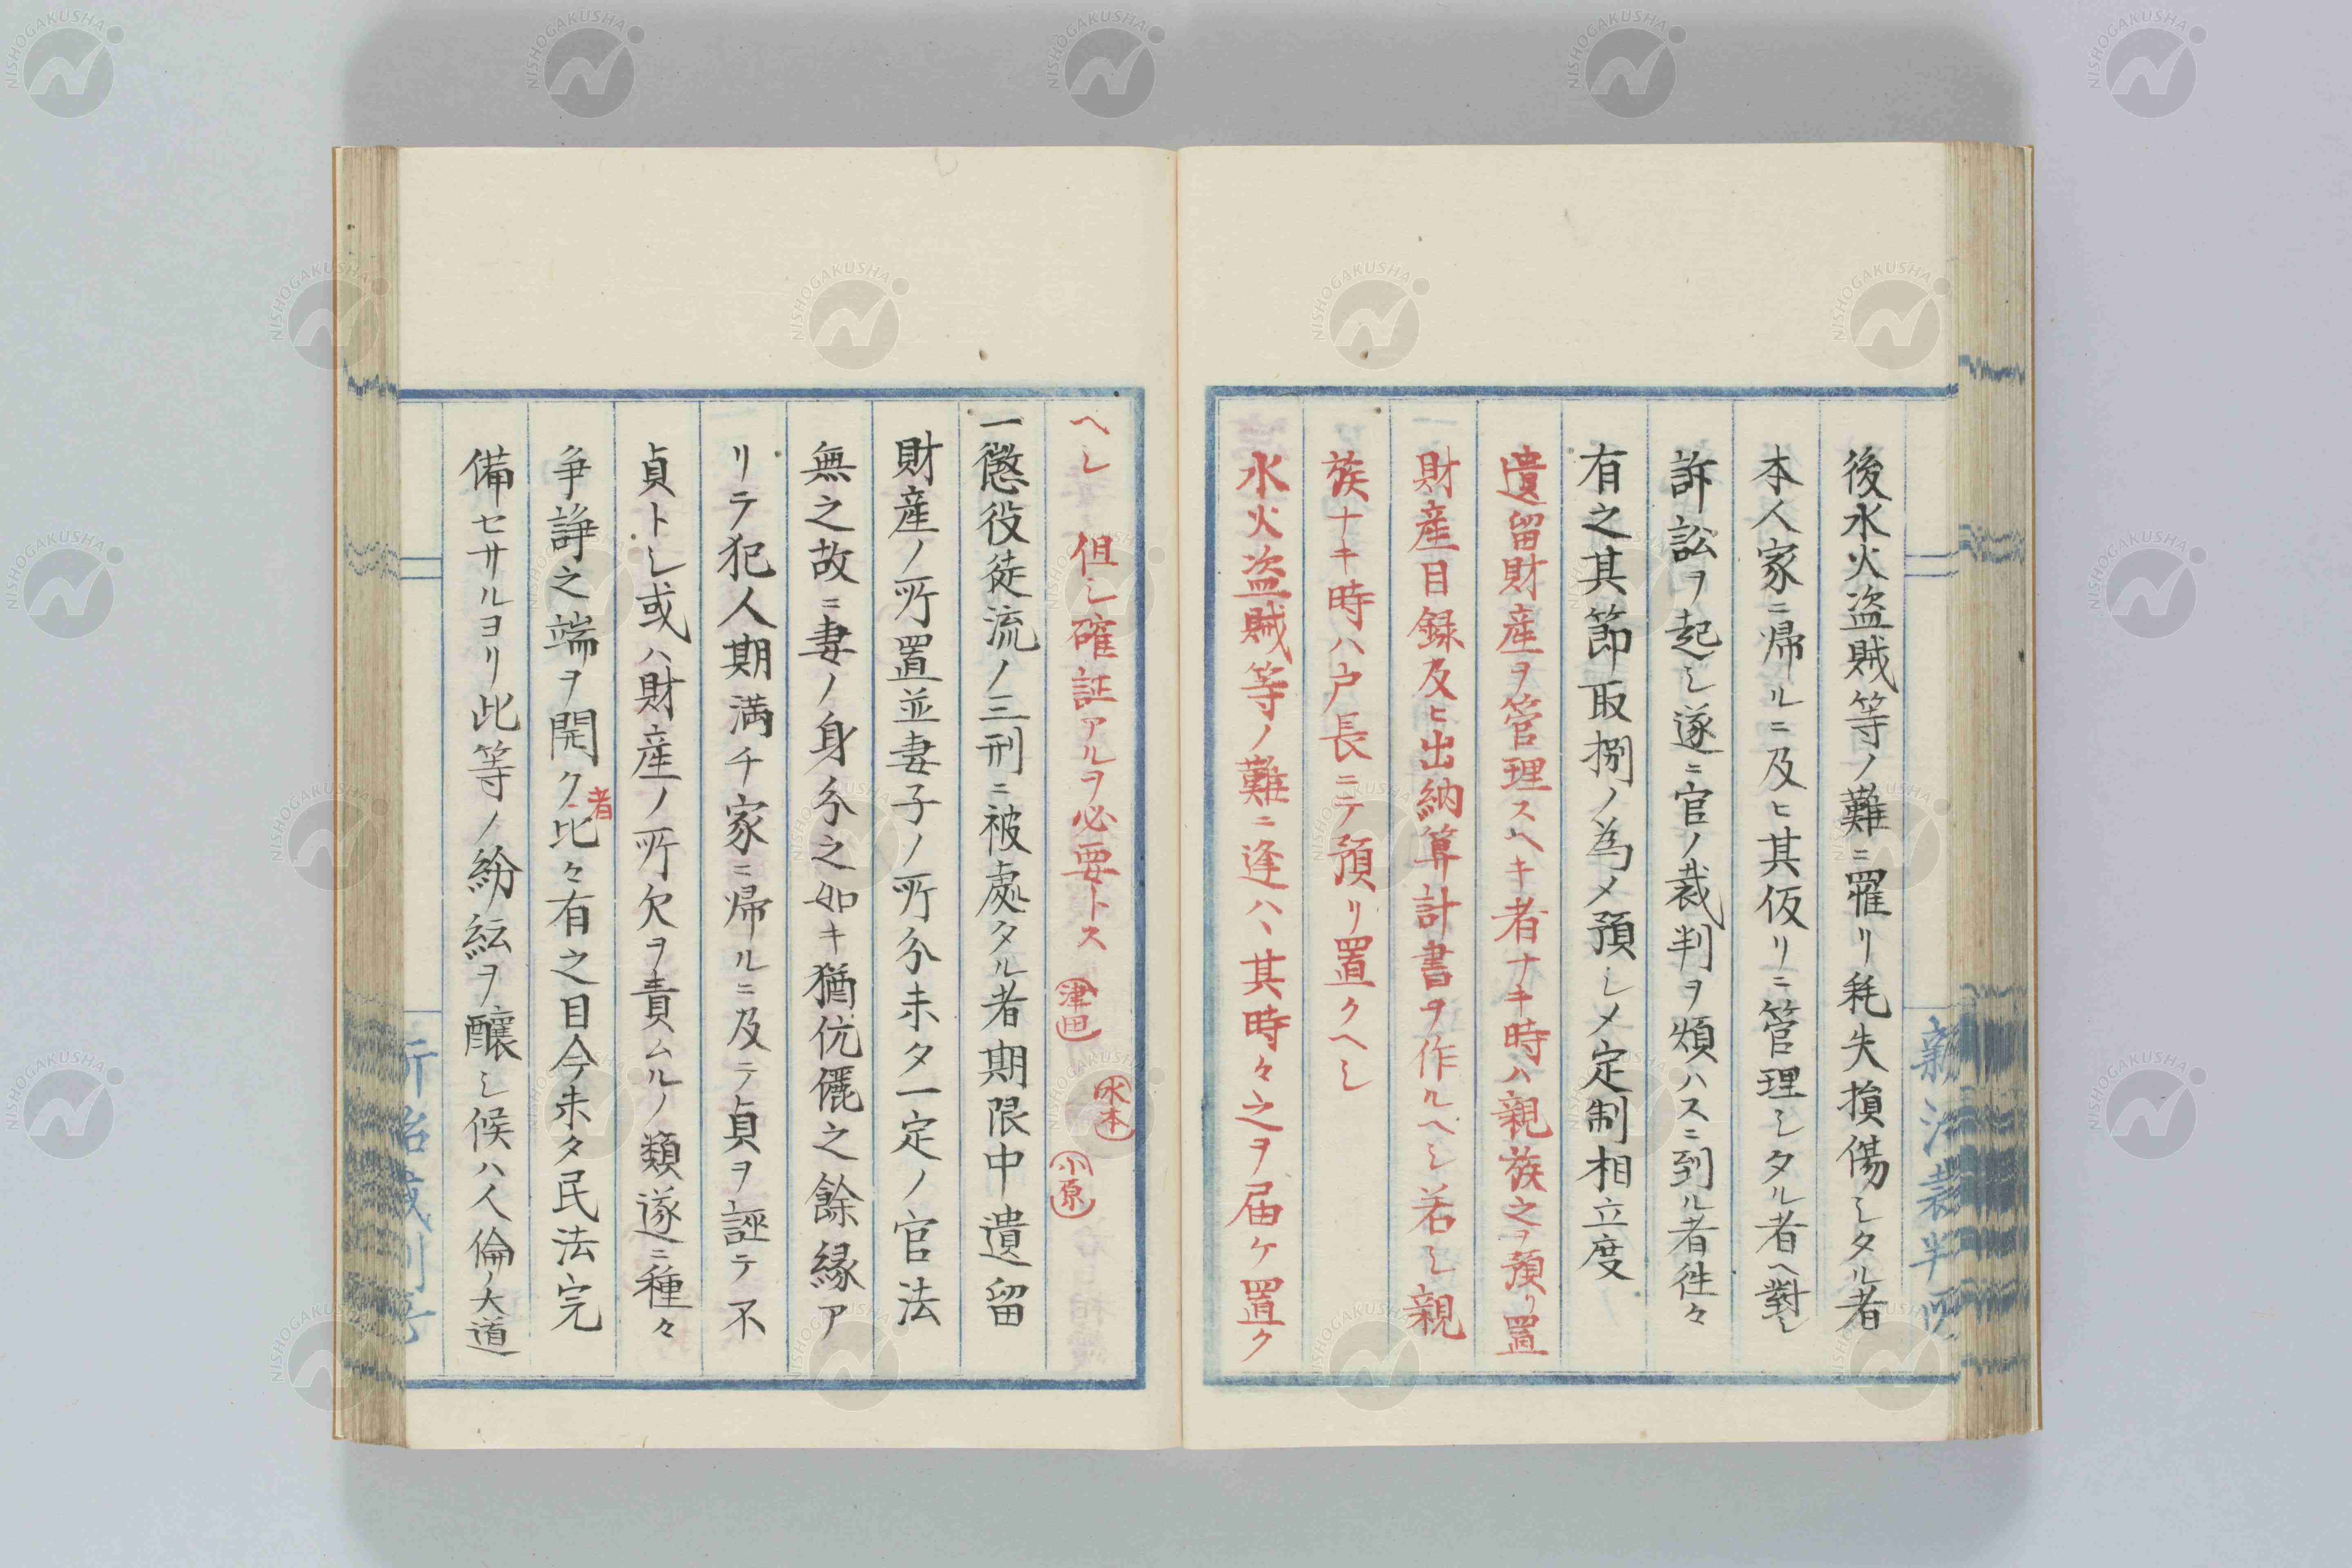 後水火盗賊等ノ難ニ罹リ耗失損傷シタル者
本人家ニ帰ルニ及ヒ其仮リニ管理シタル者ヘ對シ
訴訟ヲ起シ遂ニ官ノ裁判ヲ煩ハスニ到ル者徃々
有之其節取捌ノ為メ預シメ定制相立度
遺留財産ヲ管理スヘキ者ナキ時ハ親族之ヲ預リ置
財産目録及ヒ出納算計書ヲ作ルヘシ若シ親
族ナキ時ハ戸長ニテ預リ置クヘシ
水火盗賊等ノ難ニ逢ハヽ其時々之ヲ届ケ置ク
ヘシ 但シ確証アルヲ必要トス 津田 水本 小原
一懲役徒流ノ三刑ニ被處タル者期限中遺留
財産ノ所置並妻子ノ所分未タ一定ノ官法
無之故ニ妻ノ身分之如キ猶伉儷之餘縁ア
リテ犯人期満チ家ニ帰ルニ及テ貞ヲ誣テ不
貞トシ或ハ財産ノ所欠ヲ責ムルノ類遂ニ種々
争諍之端ヲ開ク者比々有之目今未タ民法完
備セサルヨリ此等ノ紛紜ヲ醸シ候ハ人倫ノ大道
新治裁判所
NISHOGAKUSHA